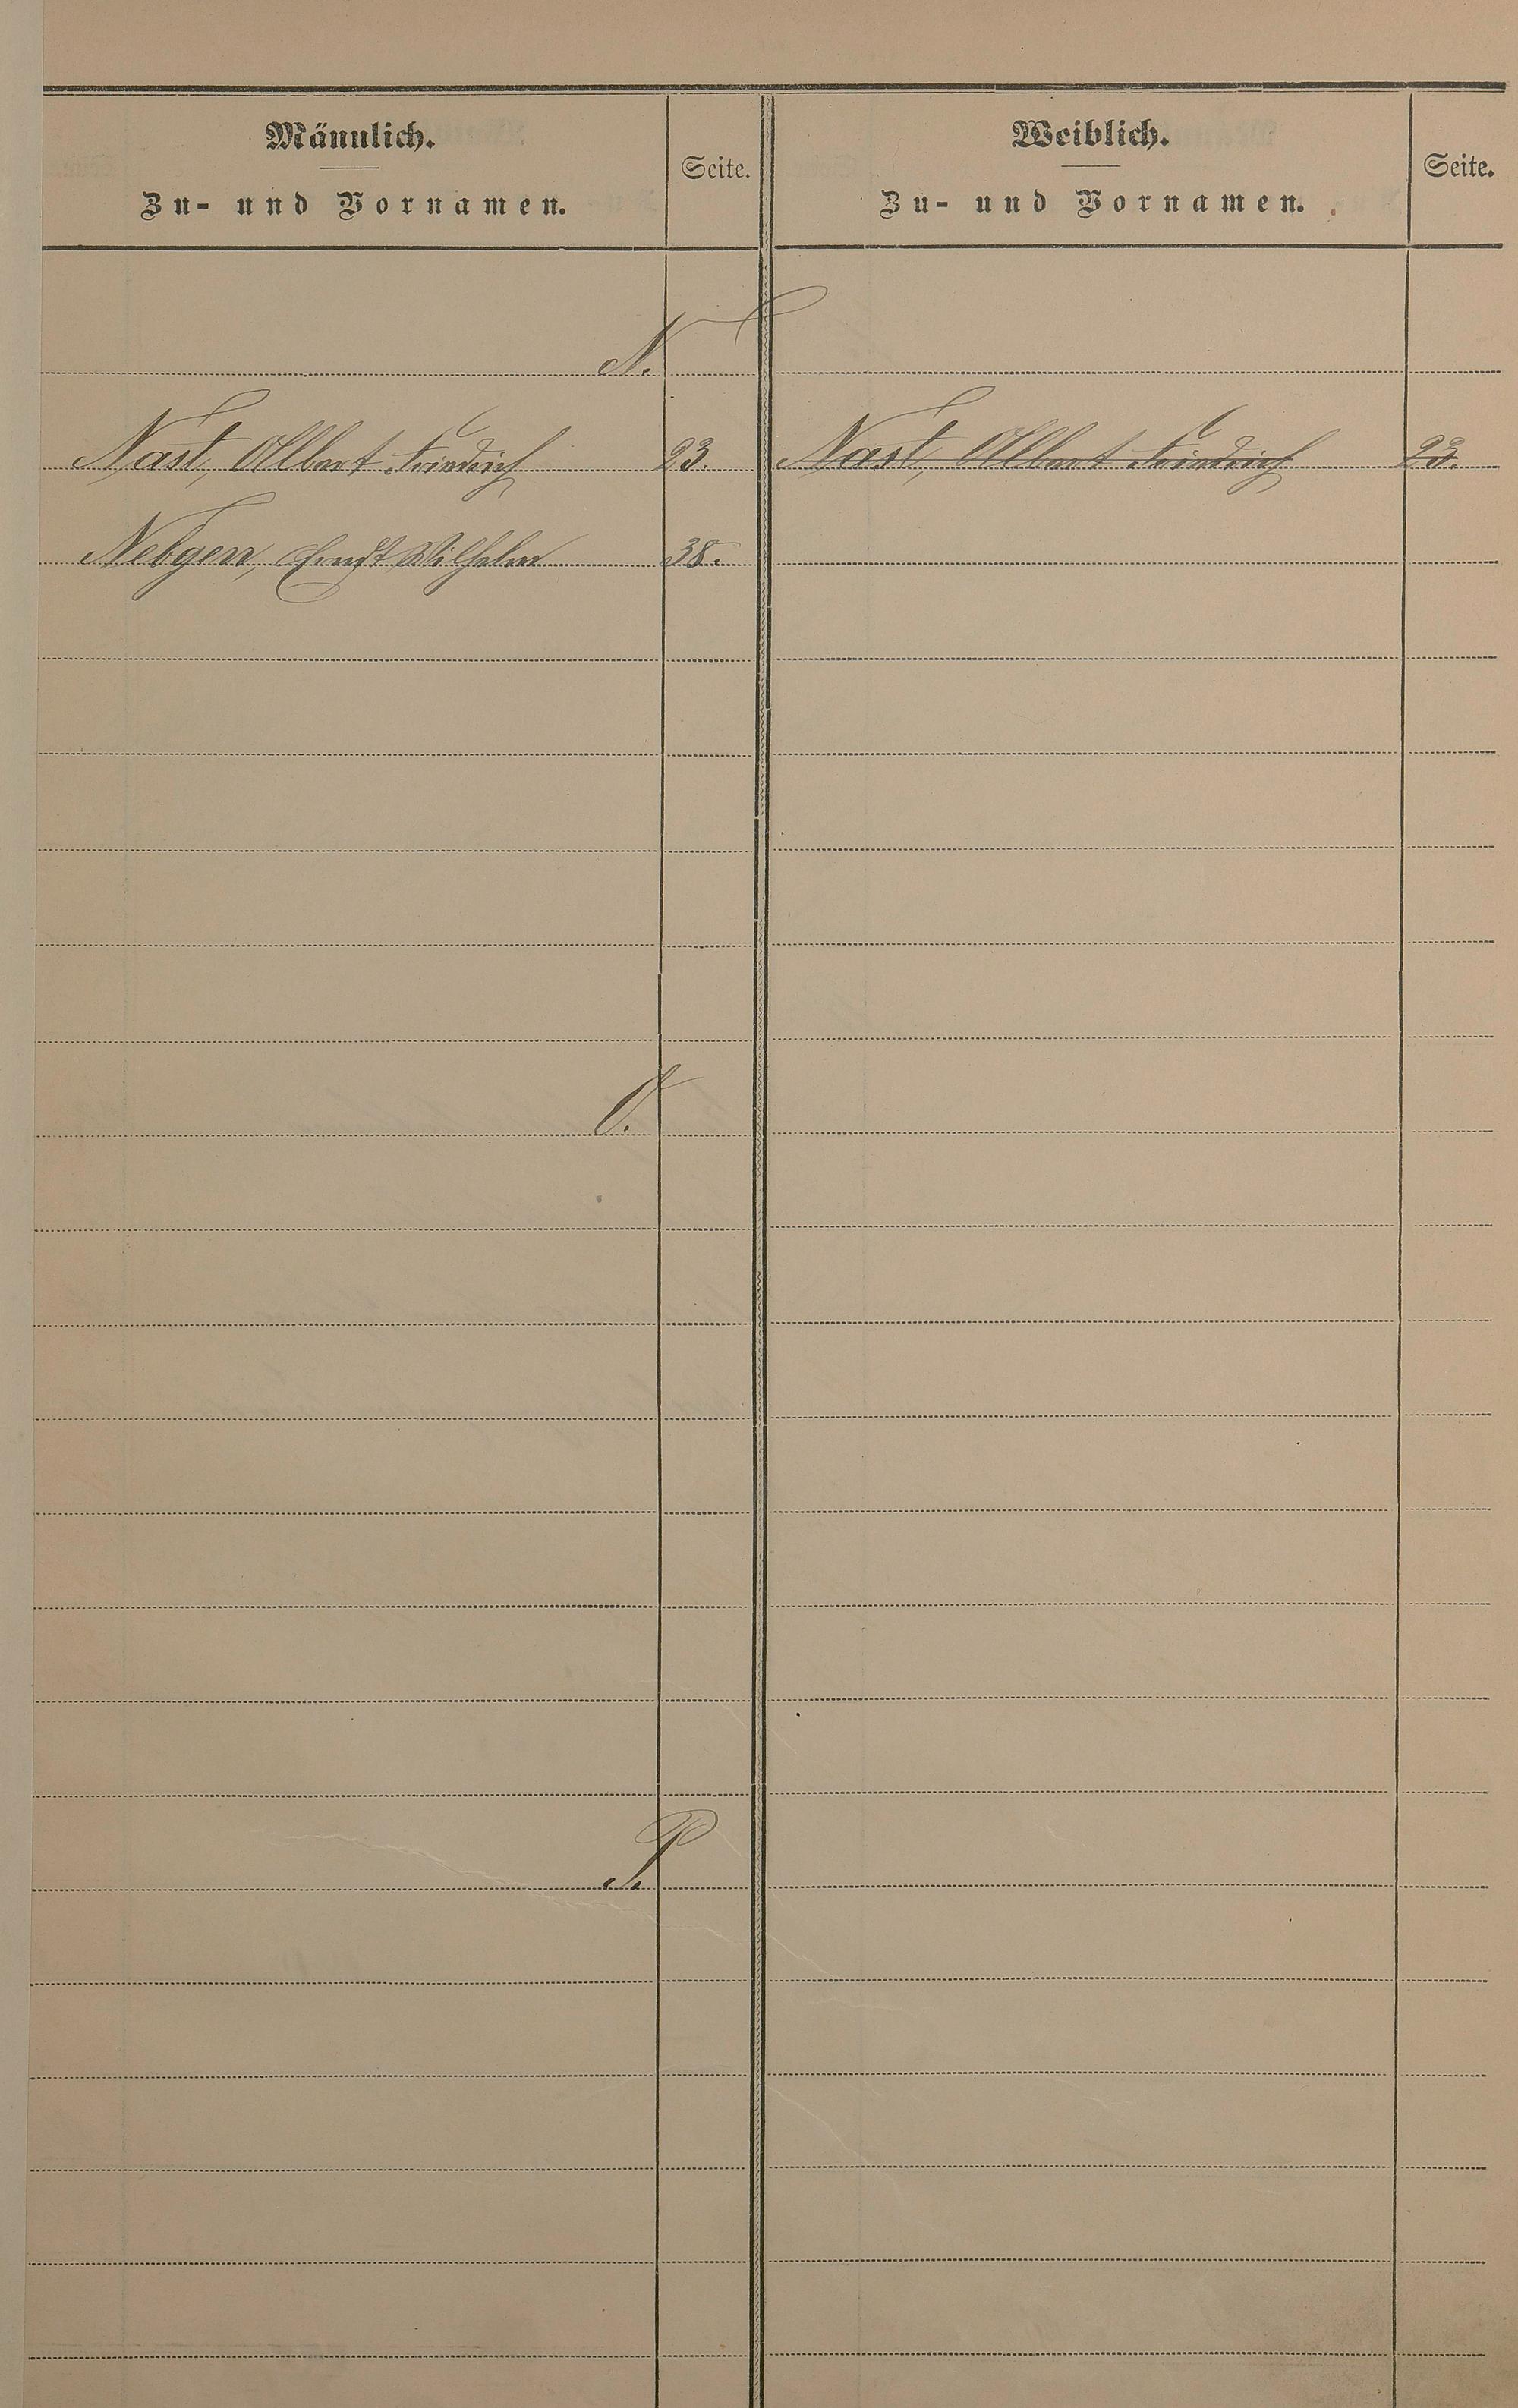 Männlich.
Zu- und Vornamen.
Seite.
Weiblich.
Zu- und Vornamen.
Seite.
N.
Nast, Albert Friedrich 23. Nast, Albert Friedrich 23.
Nebgen, Ernst Wilhelm 38.
O.
P.